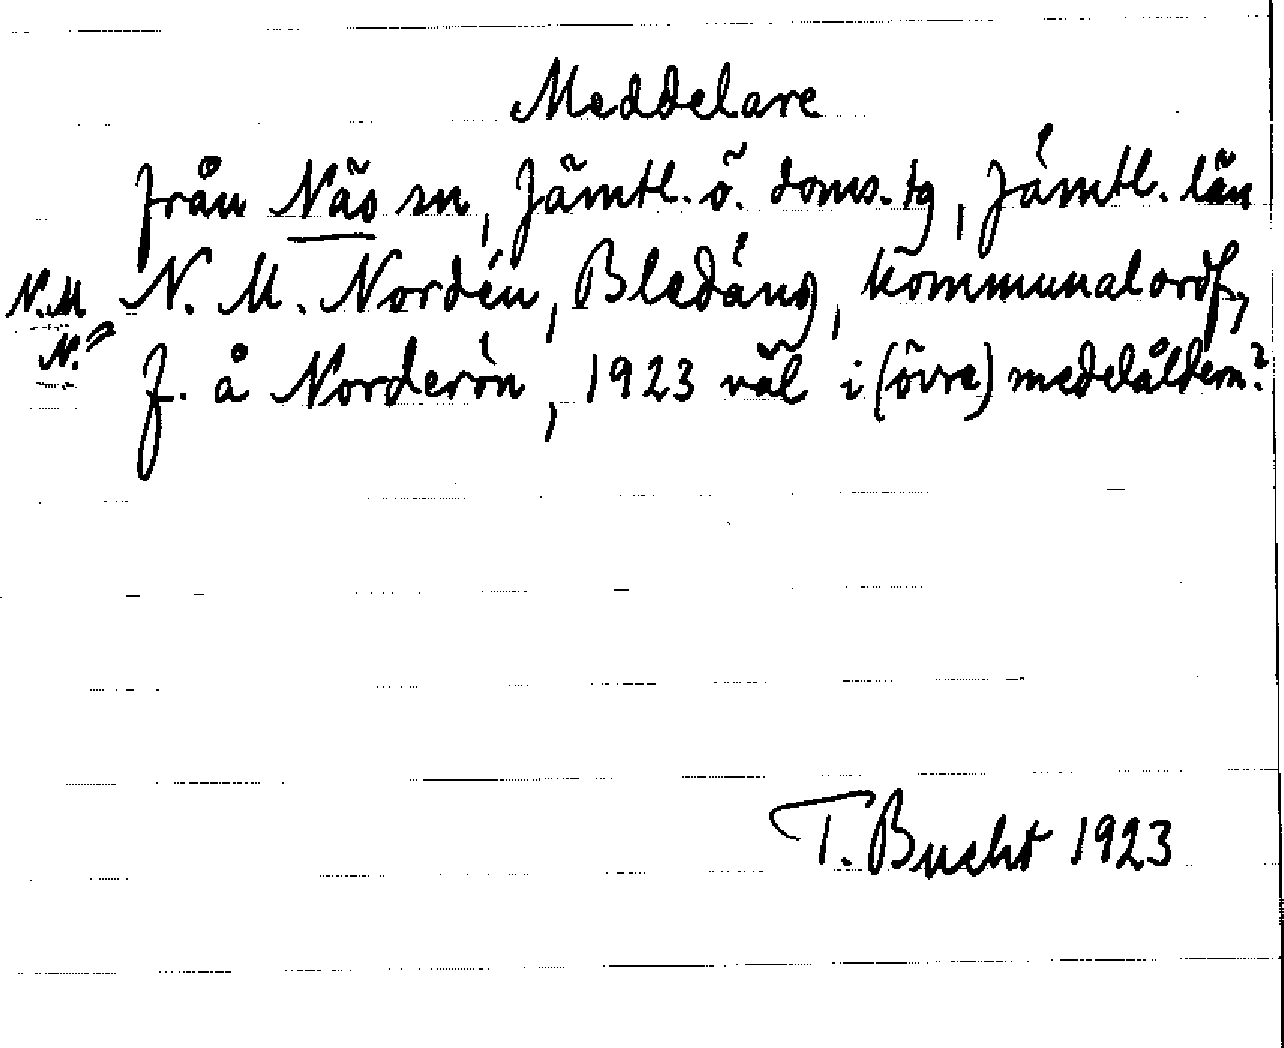 Meddelare
från Näs sn, Jämtl. ö. doms.tg, Jämtl. län
N.M N. M. Nordén, Bledäng, kommunalordf,
N. f. å Norderön, 1923 väl i (övre) medelåldern?
T. Bucht 1923